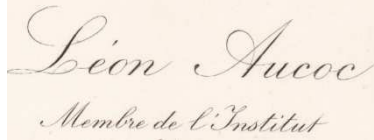 Léon Aucoc
Membre de l'Institut